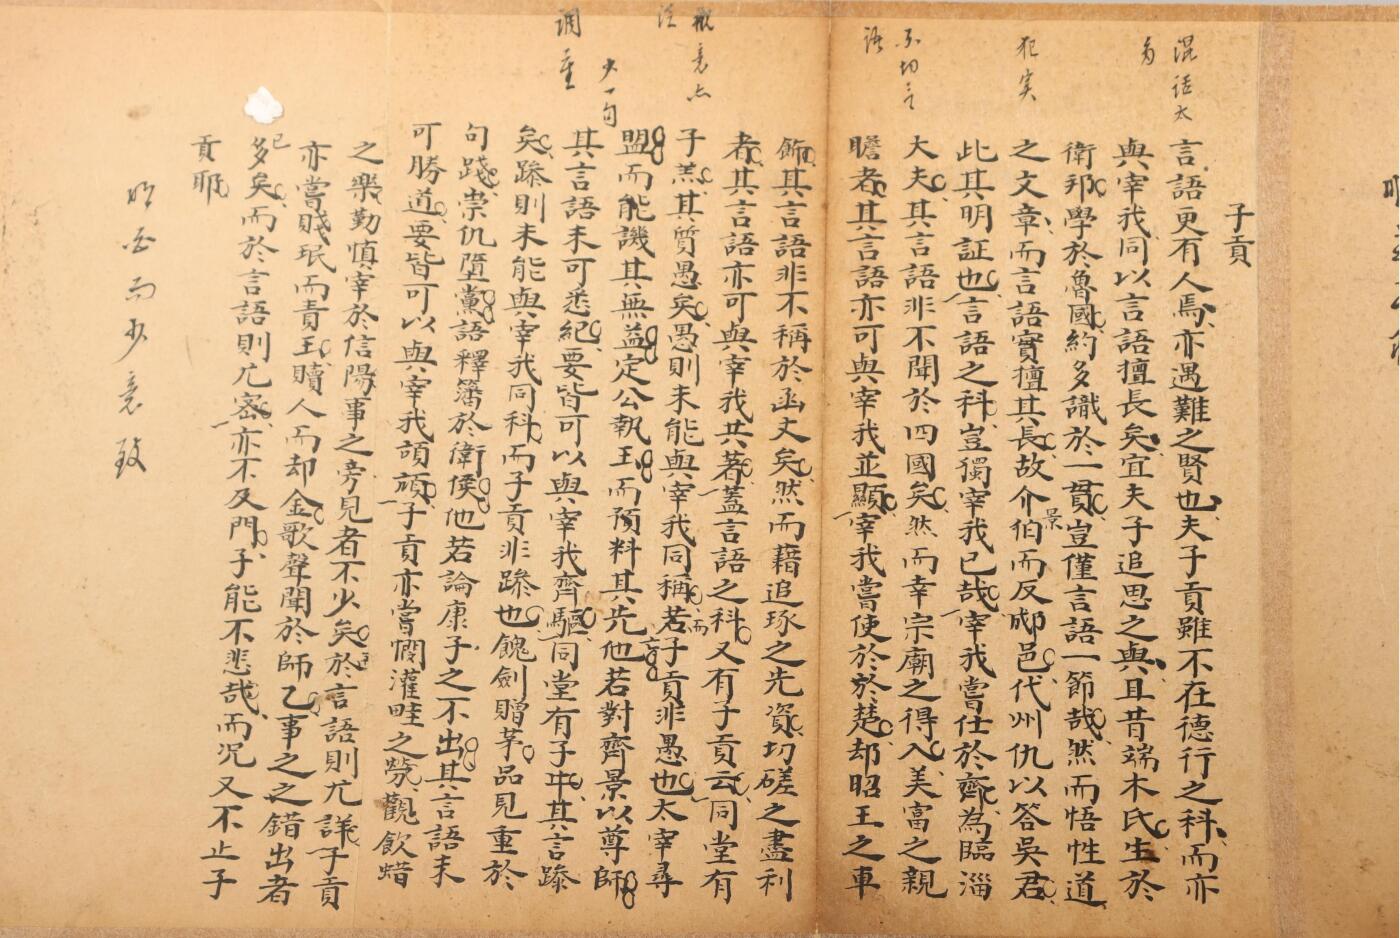 子貢
言語更有人焉亦遇難之賢也夫子貢雖不在德行之科而亦
與宰我同以言語擅長矣宜夫子追思之與且昔端木氏生於
衛邦學於魯國約多識於一貫豈僅言語一節哉然而悟性道
之文章而言語實擅其長故介伯而反郕邑代州仇以答吳君
景
此其明証也言語之科豈獨宰我已哉宰我嘗仕於齊為臨淄
大夫其言語非不聞於四國矣然而幸宗廟之得入美富之親
瞻者其言語亦可與宰我並顯宰我嘗使於於楚却昭王之車
飾其言語非不稱於函丈矣然而藉追琢之先資切磋之盡利
者其言語亦可與宰我共著蓋言語之科又有子貢云同堂有
子羔其質愚矣愚則未能與宰我同稱若子貢非愚也太宰尋
而
盟而能譏其無益定公執玉而預料其先他若對齊景以尊師
言
其言語未可悉紀要皆可以與宰我齊驅同堂有子由其言
矣則未能與宰我同科而子貢非也餽劍贈茅品見重於
句踐崇仇墮黨語釋籓於衛侯他若論康子之不出其言語未
可勝道要皆可以與宰我頡頏子貢亦嘗憫灌畦之勞觀飲蜡
之樂勤慎宰於信陽事之旁見者不少矣於言語則尤詳子貢
亦嘗賤珉而責玉贖人而却金歌聲聞於師乙事之之錯出者
已
多矣而於言語則尤密亦不及門子能不悲哉而況又不止子
貢耶
混話太
多
犯実
不切言
語
少一句
調重
明白而少意致